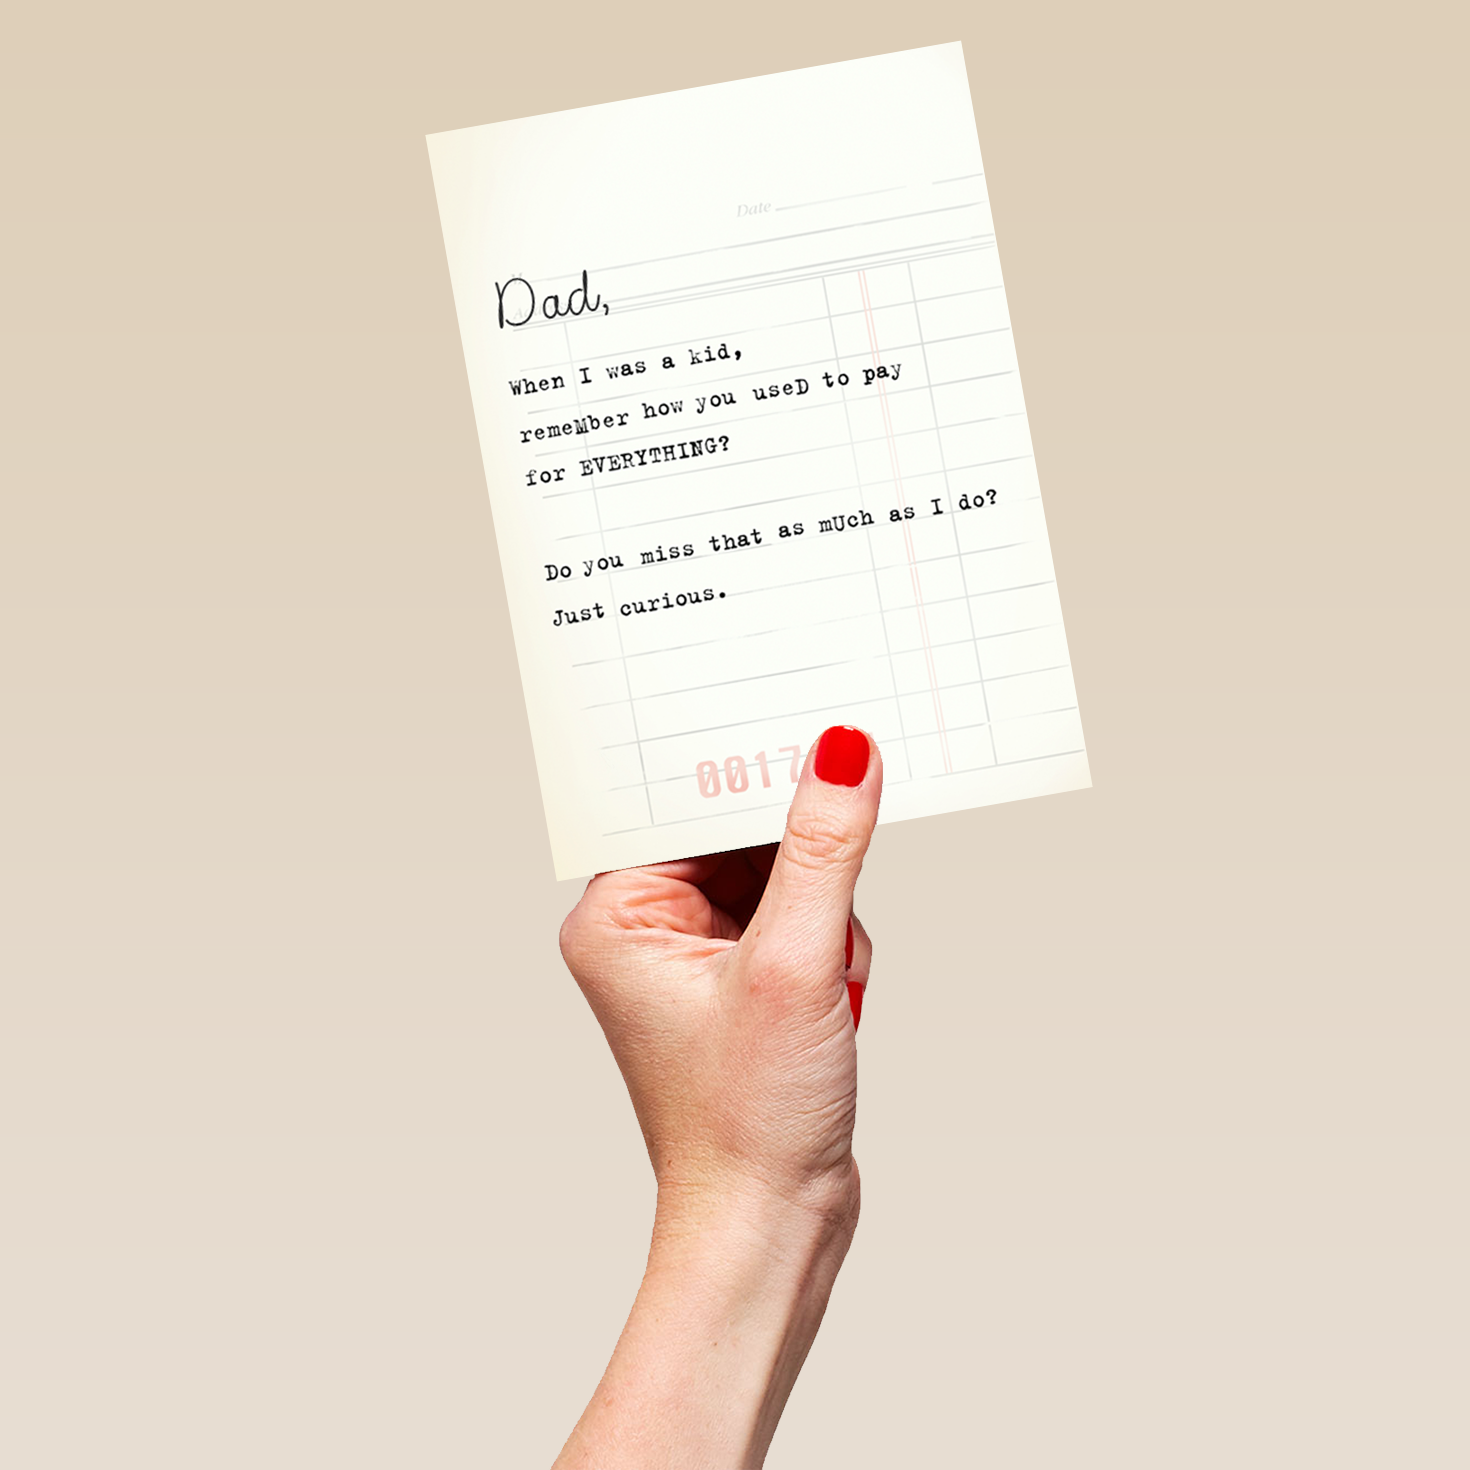 Date
Dad,
When I was a kid,
remeMber how you useD to pay
for EVERYTHING?
Do you miss that as mUch as I do?
Just curious.
0017